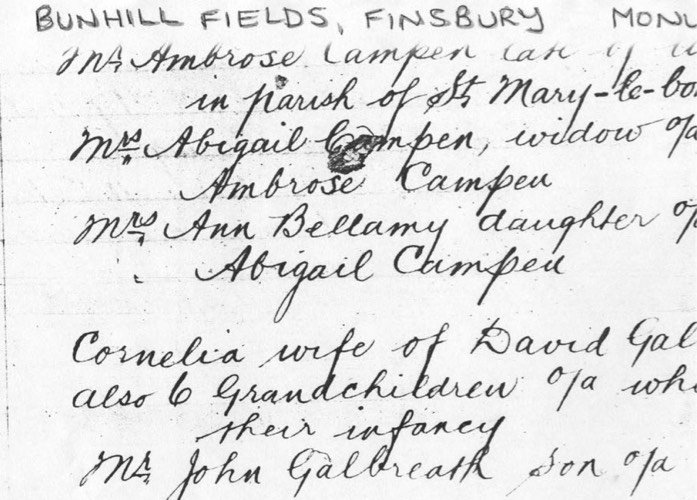 BUNHILL FIELDS, FINSBURY MONU
Mr Ambrose Campen late of
in parish of St Mary-le-bo
Mrs Abigail Campen, widow o/a
Ambrose Campen
Mrs Ann Bellamy daughter o/
Abigail Campen
Cornelia wife of David Gal
also 6 Grandchildren o/a wh
their infancy
Mr John Galbreath son o/a